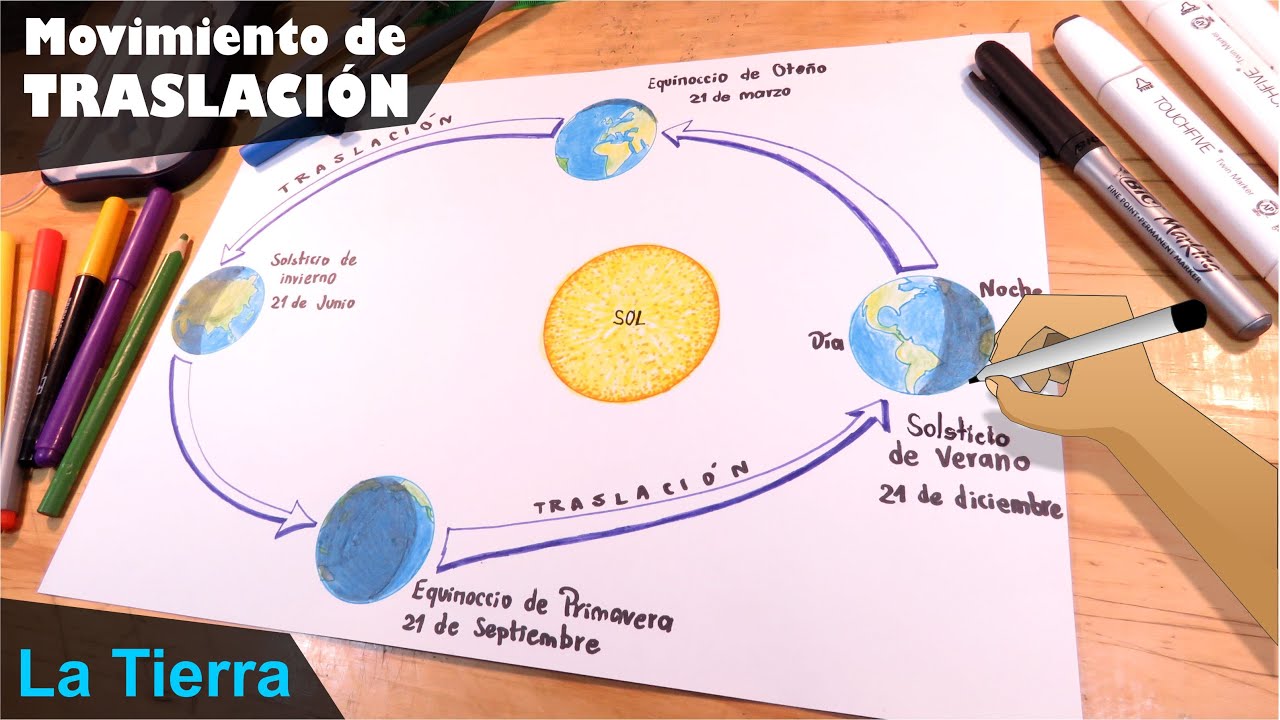 Movimiento de
TRASLACIÓN
Equinoccio de Otoño
21 de marzo
TRASLACIÓN
Solsticio de
invierno
21 de Junio
SOL
Día
Noche
Solsticio
de Verano
21 de diciembre
TRASLACIÓN
Equinoccio de Primavera
21 de Septiembre
La Tierra
BIC Marking
FINE POINT-PERMANENT MARKER
TOUCHFIVE
Twin Marker
Twin Marker